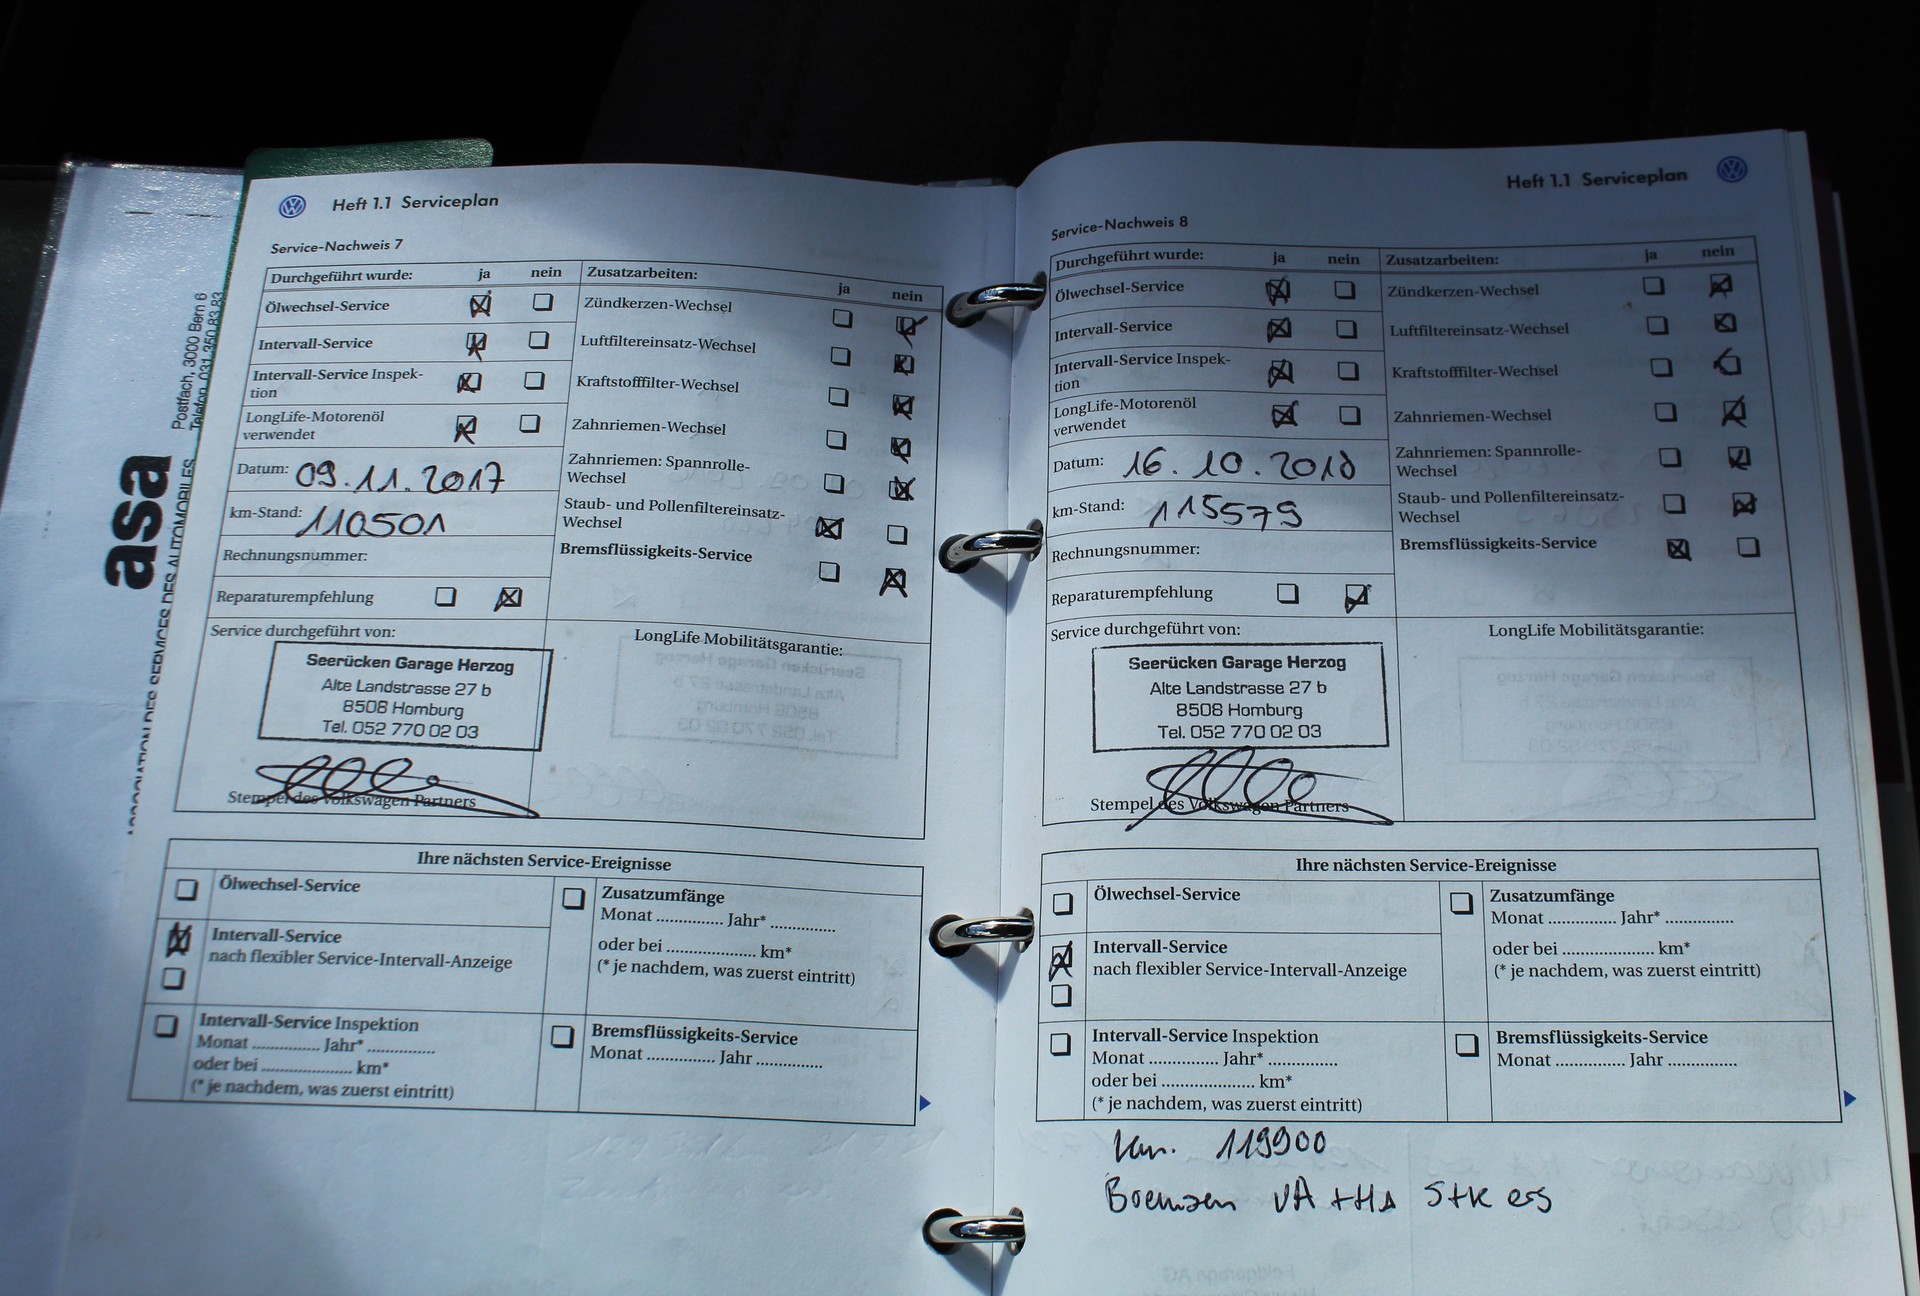 asa
ASSOCIATION DES SERVICES DES AUTOMOBILES
Postfach, 3000 Bern 6
Telefon 031 350 83 83
Heft 1.1 Serviceplan
Service-Nachweis 7
Durchgeführt wurde: ja nein
Ölwechsel-Service
Intervall-Service
Intervall-Service Inspek-
tion
LongLife-Motorenöl
verwendet
Datum: 09.11.2017
km-Stand: 110501
Rechnungsnummer:
Reparaturempfehlung
Zusatzarbeiten: ja nein
Zündkerzen-Wechsel
Luftfiltereinsatz-Wechsel
Kraftstofffilter-Wechsel
Zahnriemen-Wechsel
Zahnriemen: Spannrolle-
Wechsel
Staub- und Pollenfiltereinsatz-
Wechsel
Bremsflüssigkeits-Service
Service durchgeführt von:
Seerücken Garage Herzog
Alte Landstrasse 27 b
8508 Homburg
Tel. 052 770 02 03
Stempel des Volkswagen Partners
LongLife Mobilitätsgarantie:
Ihre nächsten Service-Ereignisse
Ölwechsel-Service
Intervall-Service
nach flexibler Service-Intervall-Anzeige
Intervall-Service Inspektion
Monat .............. Jahr* ..............
oder bei .................... km*
(* je nachdem, was zuerst eintritt)
Zusatzumfänge
Monat .............. Jahr* ..............
oder bei .................... km*
(* je nachdem, was zuerst eintritt)
Bremsflüssigkeits-Service
Monat .............. Jahr ..............
Heft 1.1 Serviceplan
Service-Nachweis 8
Durchgeführt wurde: ja nein
Ölwechsel-Service
Intervall-Service
Intervall-Service Inspek-
tion
LongLife-Motorenöl
verwendet
Datum: 16.10.2018
km-Stand: 115579
Rechnungsnummer:
Reparaturempfehlung
Zusatzarbeiten: ja nein
Zündkerzen-Wechsel
Luftfiltereinsatz-Wechsel
Kraftstofffilter-Wechsel
Zahnriemen-Wechsel
Zahnriemen: Spannrolle-
Wechsel
Staub- und Pollenfiltereinsatz-
Wechsel
Bremsflüssigkeits-Service
Service durchgeführt von:
Seerücken Garage Herzog
Alte Landstrasse 27 b
8508 Homburg
Tel. 052 770 02 03
Stempel des Volkswagen Partners
LongLife Mobilitätsgarantie:
Ihre nächsten Service-Ereignisse
Ölwechsel-Service
Intervall-Service
nach flexibler Service-Intervall-Anzeige
Intervall-Service Inspektion
Monat .............. Jahr* ..............
oder bei .................... km*
(* je nachdem, was zuerst eintritt)
Zusatzumfänge
Monat .............. Jahr* ..............
oder bei .................... km*
(* je nachdem, was zuerst eintritt)
Bremsflüssigkeits-Service
Monat .............. Jahr ..............
km. 119900
Bremsen VA + HA